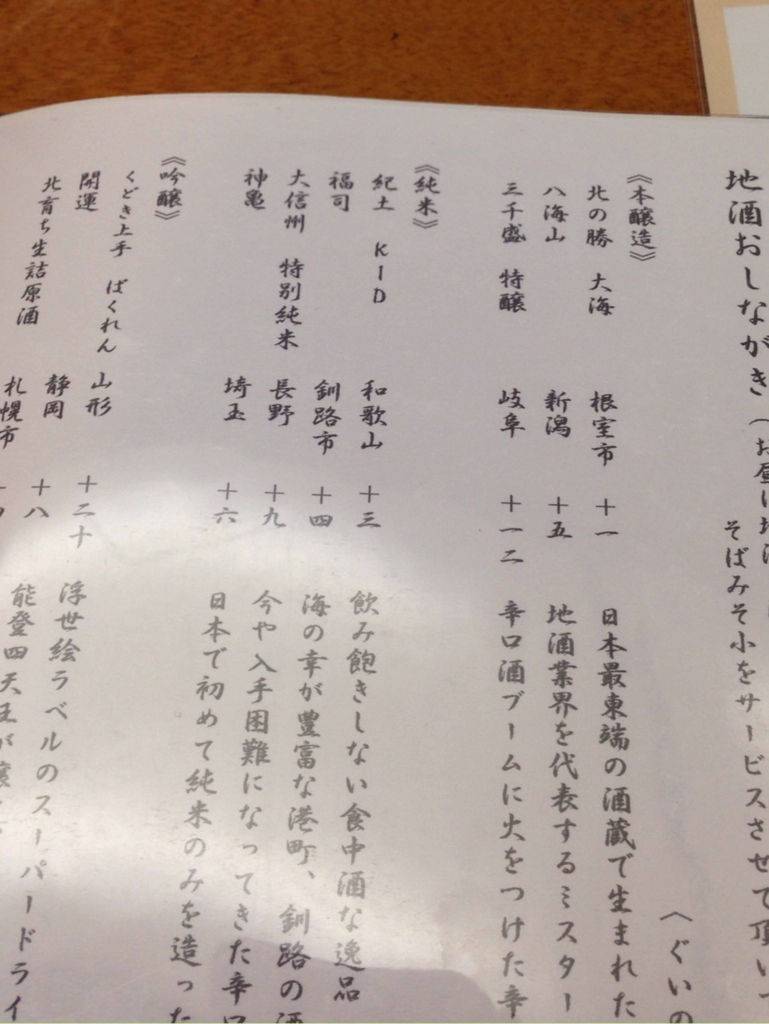 地酒おしながき
そばみそ小をサービスさせて頂いて
《本醸造》
北の勝 大海 根室市 十一 日本最東端の酒蔵で生まれた
八海山 新潟 十五 地酒業界を代表するミスター
三千盛 特醸 岐阜 十一二 辛口酒ブームに火をつけた辛
《純米》
紀土 KID 和歌山 十三 飲み飽きしない食中酒な逸品
福司 釧路市 十四 海の幸が豊富な港町、釧路の酒
大信州 特別純米 長野 十九 今や入手困難になってきた辛口
神亀 埼玉 十六 日本で初めて純米のみを造った
《吟醸》
くどき上手 ばくれん 山形 十二十 浮世絵ラベルのスーパードライ
開運 静岡 十八 能登四天王が醸
北育ち生詰原酒 札幌市